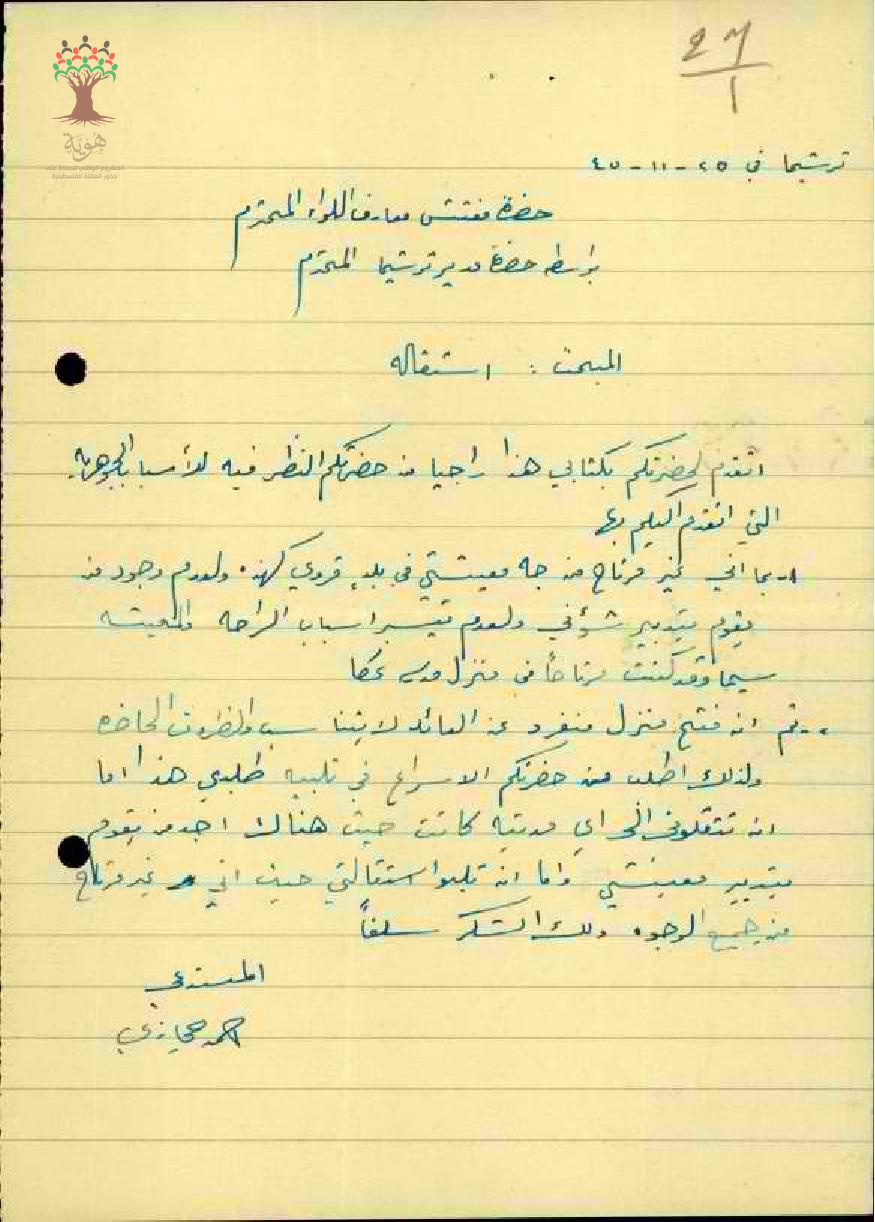 ٢٦
١
هُوِيَّة
المشروع الوطني للحفاظ على
جذور العائلة الفلسطينية
ترشيحا في ٢٥ - ١١ - ٤٥
حضرة مفتش معارف اللواء المحترم
بواسطه حضرة مدير ترشيحا المحترم
المبحث : استقاله
اتقدم لحضرتكم بكتابي هذا راجيا من حضرتكم النظر فيه للأسباب الجوهريه
التي اتقدم اليكم بها
١- بما اني غير مرتاح من جهة معيشتي في بلد قروي كهذه ولعدم وجود من
يقوم بتدبير شؤوني ولعدم تيسر اسباب الراحه والمعيشه
سيما وقد كنت مرتاحاً في منزل عكا
٢- ثم ان فتح منزل منفرد عن العائله لا يتناسب والظروف الحاضره
ولذلك اطلب من حضرتكم الاسراع في تلبيه طلبي هذا اما
ان تنقلوني الى اي مدينه كانت حيث هناك اجد من يقوم
بتدبير معيشتي واما ان تقبلوا استقالتي حيث اني غير مرتاح
من جميع الوجوه ولك الشكر سلفاً
المستدعي
احمد حجازي